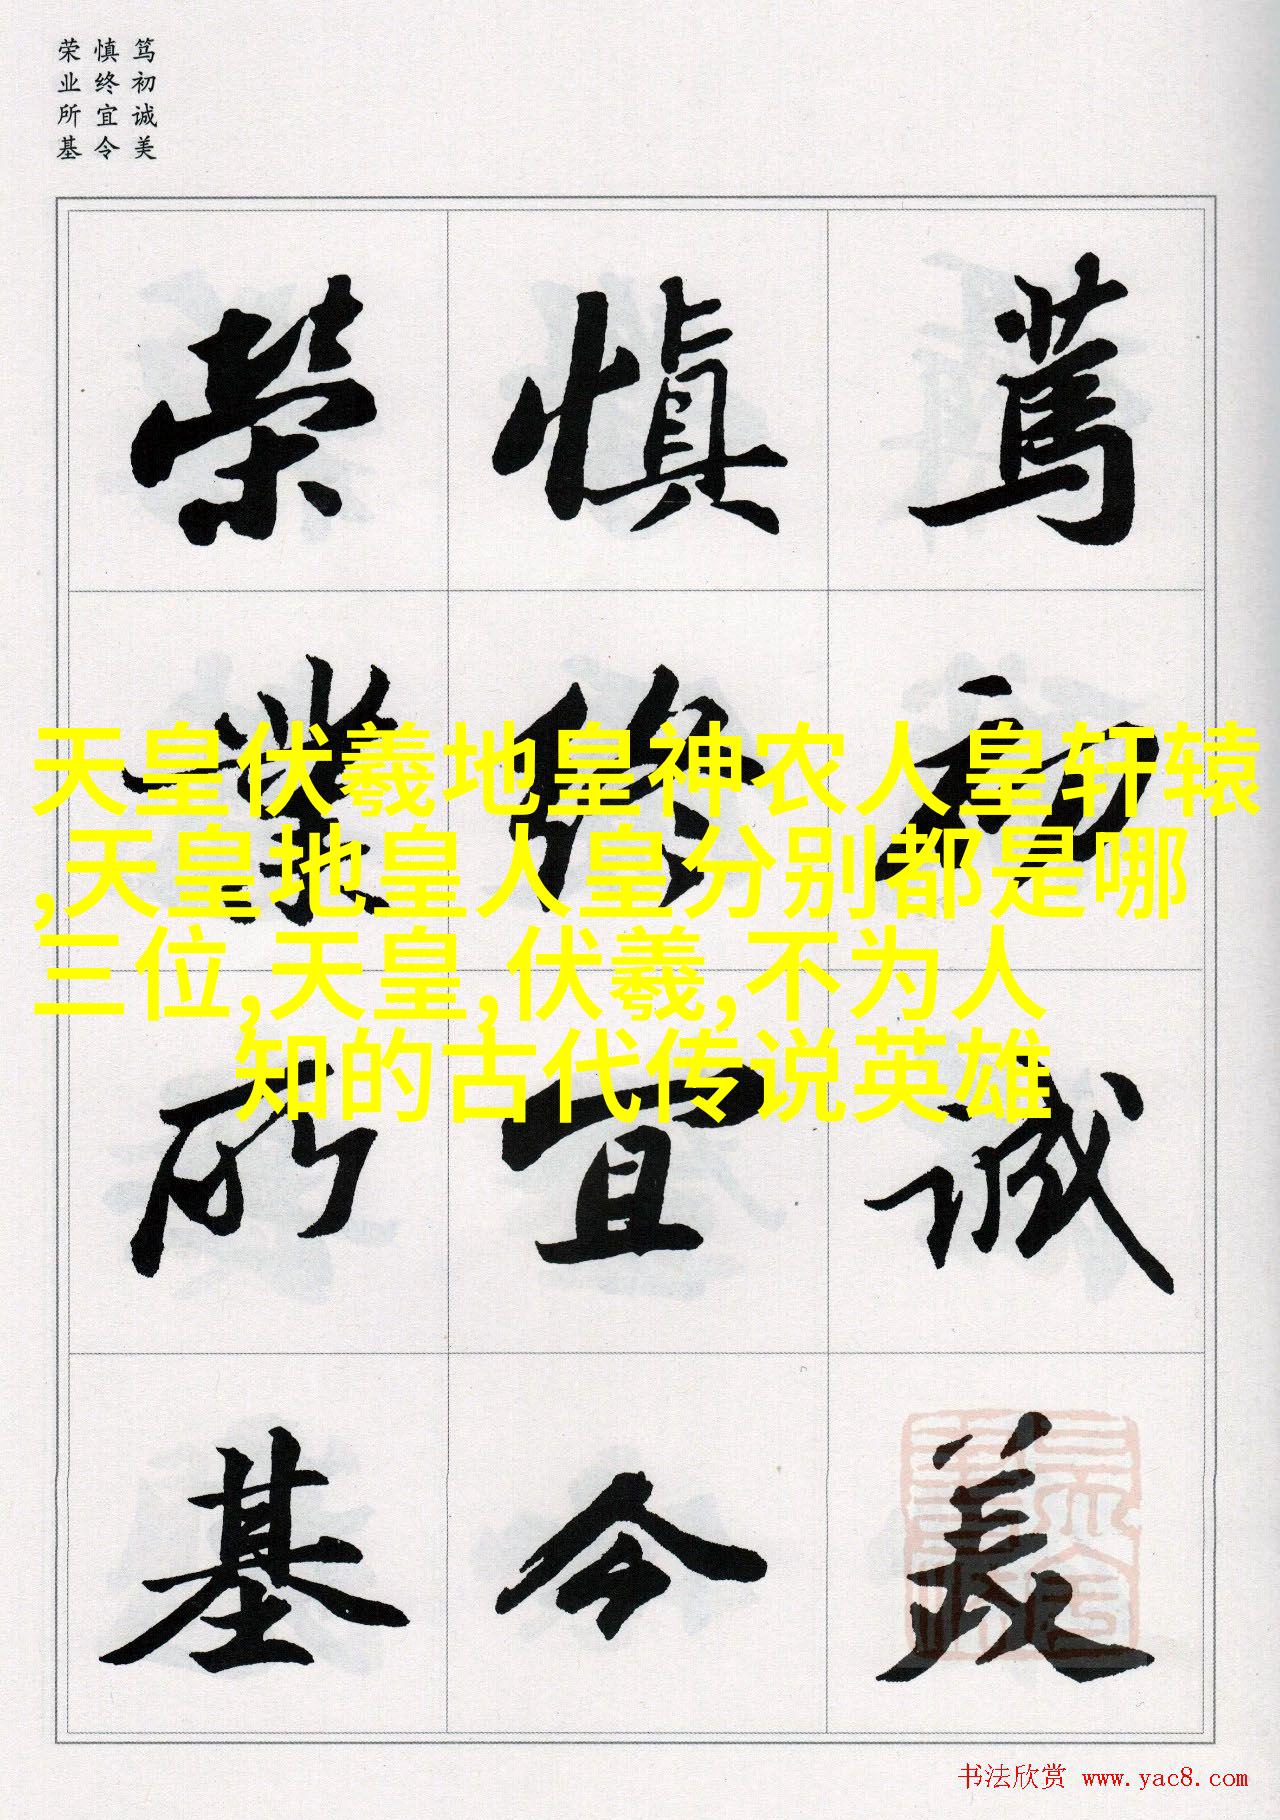 笃初诚美
慎终宜令
荣业所基
篤初誠美
慎終宜令
榮業所基
天皇伏羲地皇神农人皇轩辕
,天皇地皇人皇分别都是哪
三位,天皇,伏羲,不为人
知的古代传说英雄
书法欣赏 www.yac8.com